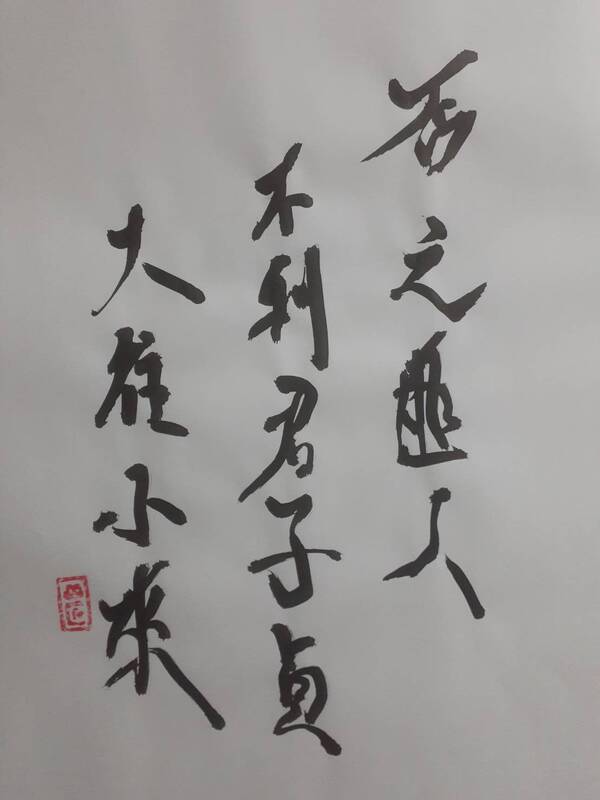 否之匪人
不利君子貞
大往小來